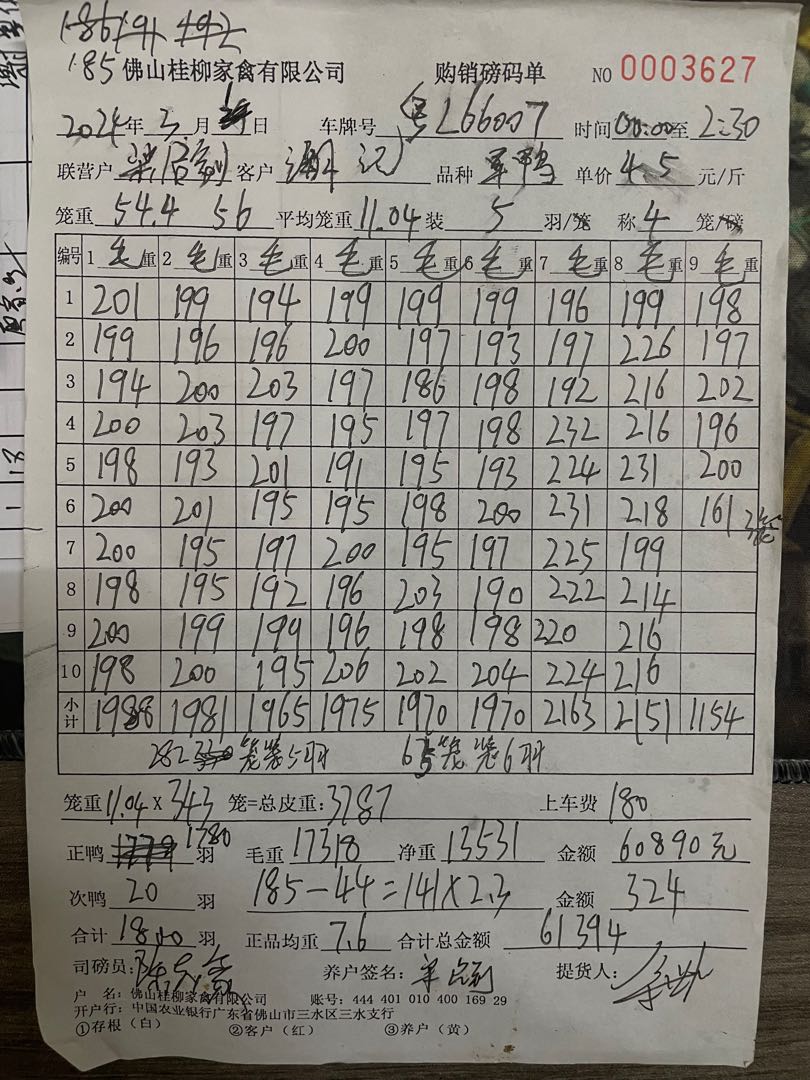 185 佛山桂柳家禽有限公司 购销磅码单 NO 0003627
2024年 3月 日 车牌号 粤L66007 时间 00:00 至 2:30
联营户 客户 潮记 品种 单鸭 单价 4.5 元/斤
笼重 54.4 56 平均笼重 11.04 装 5 羽/笼 称 4 笼/磅
编号 1 毛重 2 毛重 3 毛重 4 毛重 5 毛重 6 毛重 7 毛重 8 毛重 9 毛重
1 201 199 194 199 199 199 196 199 198
2 199 196 196 200 197 193 197 226 197
3 194 200 203 197 186 198 192 216 202
4 200 203 197 195 197 198 232 216 196
5 198 193 201 191 195 193 224 231 200
6 200 201 195 195 198 200 231 218 161 3笼
7 200 195 197 200 195 197 225 199
8 198 195 192 196 203 190 222 214
9 200 199 199 196 198 198 220 216
10 198 200 195 206 202 204 224 216
小计 1988 1981 1965 1975 1970 1970 2163 2151 1154
282 笼装5羽 笼装6羽
笼重 11.04 X 343 笼=总皮重: 3787 上车费 180
正鸭 1780 羽 毛重 17318 净重 13531 金额 60890元
次鸭 20 羽 185-44=141X2.3 金额 324
合计 1800 羽 正品均重 7.6 合计总金额 61394
司磅员: 养户签名: 提货人:
户 名: 佛山桂柳家禽有限公司 账号: 444 401 010 400 169 29
开户行: 中国农业银行广东省佛山市三水区三水支行
①存根（白） ②客户（红） ③养户（黄）